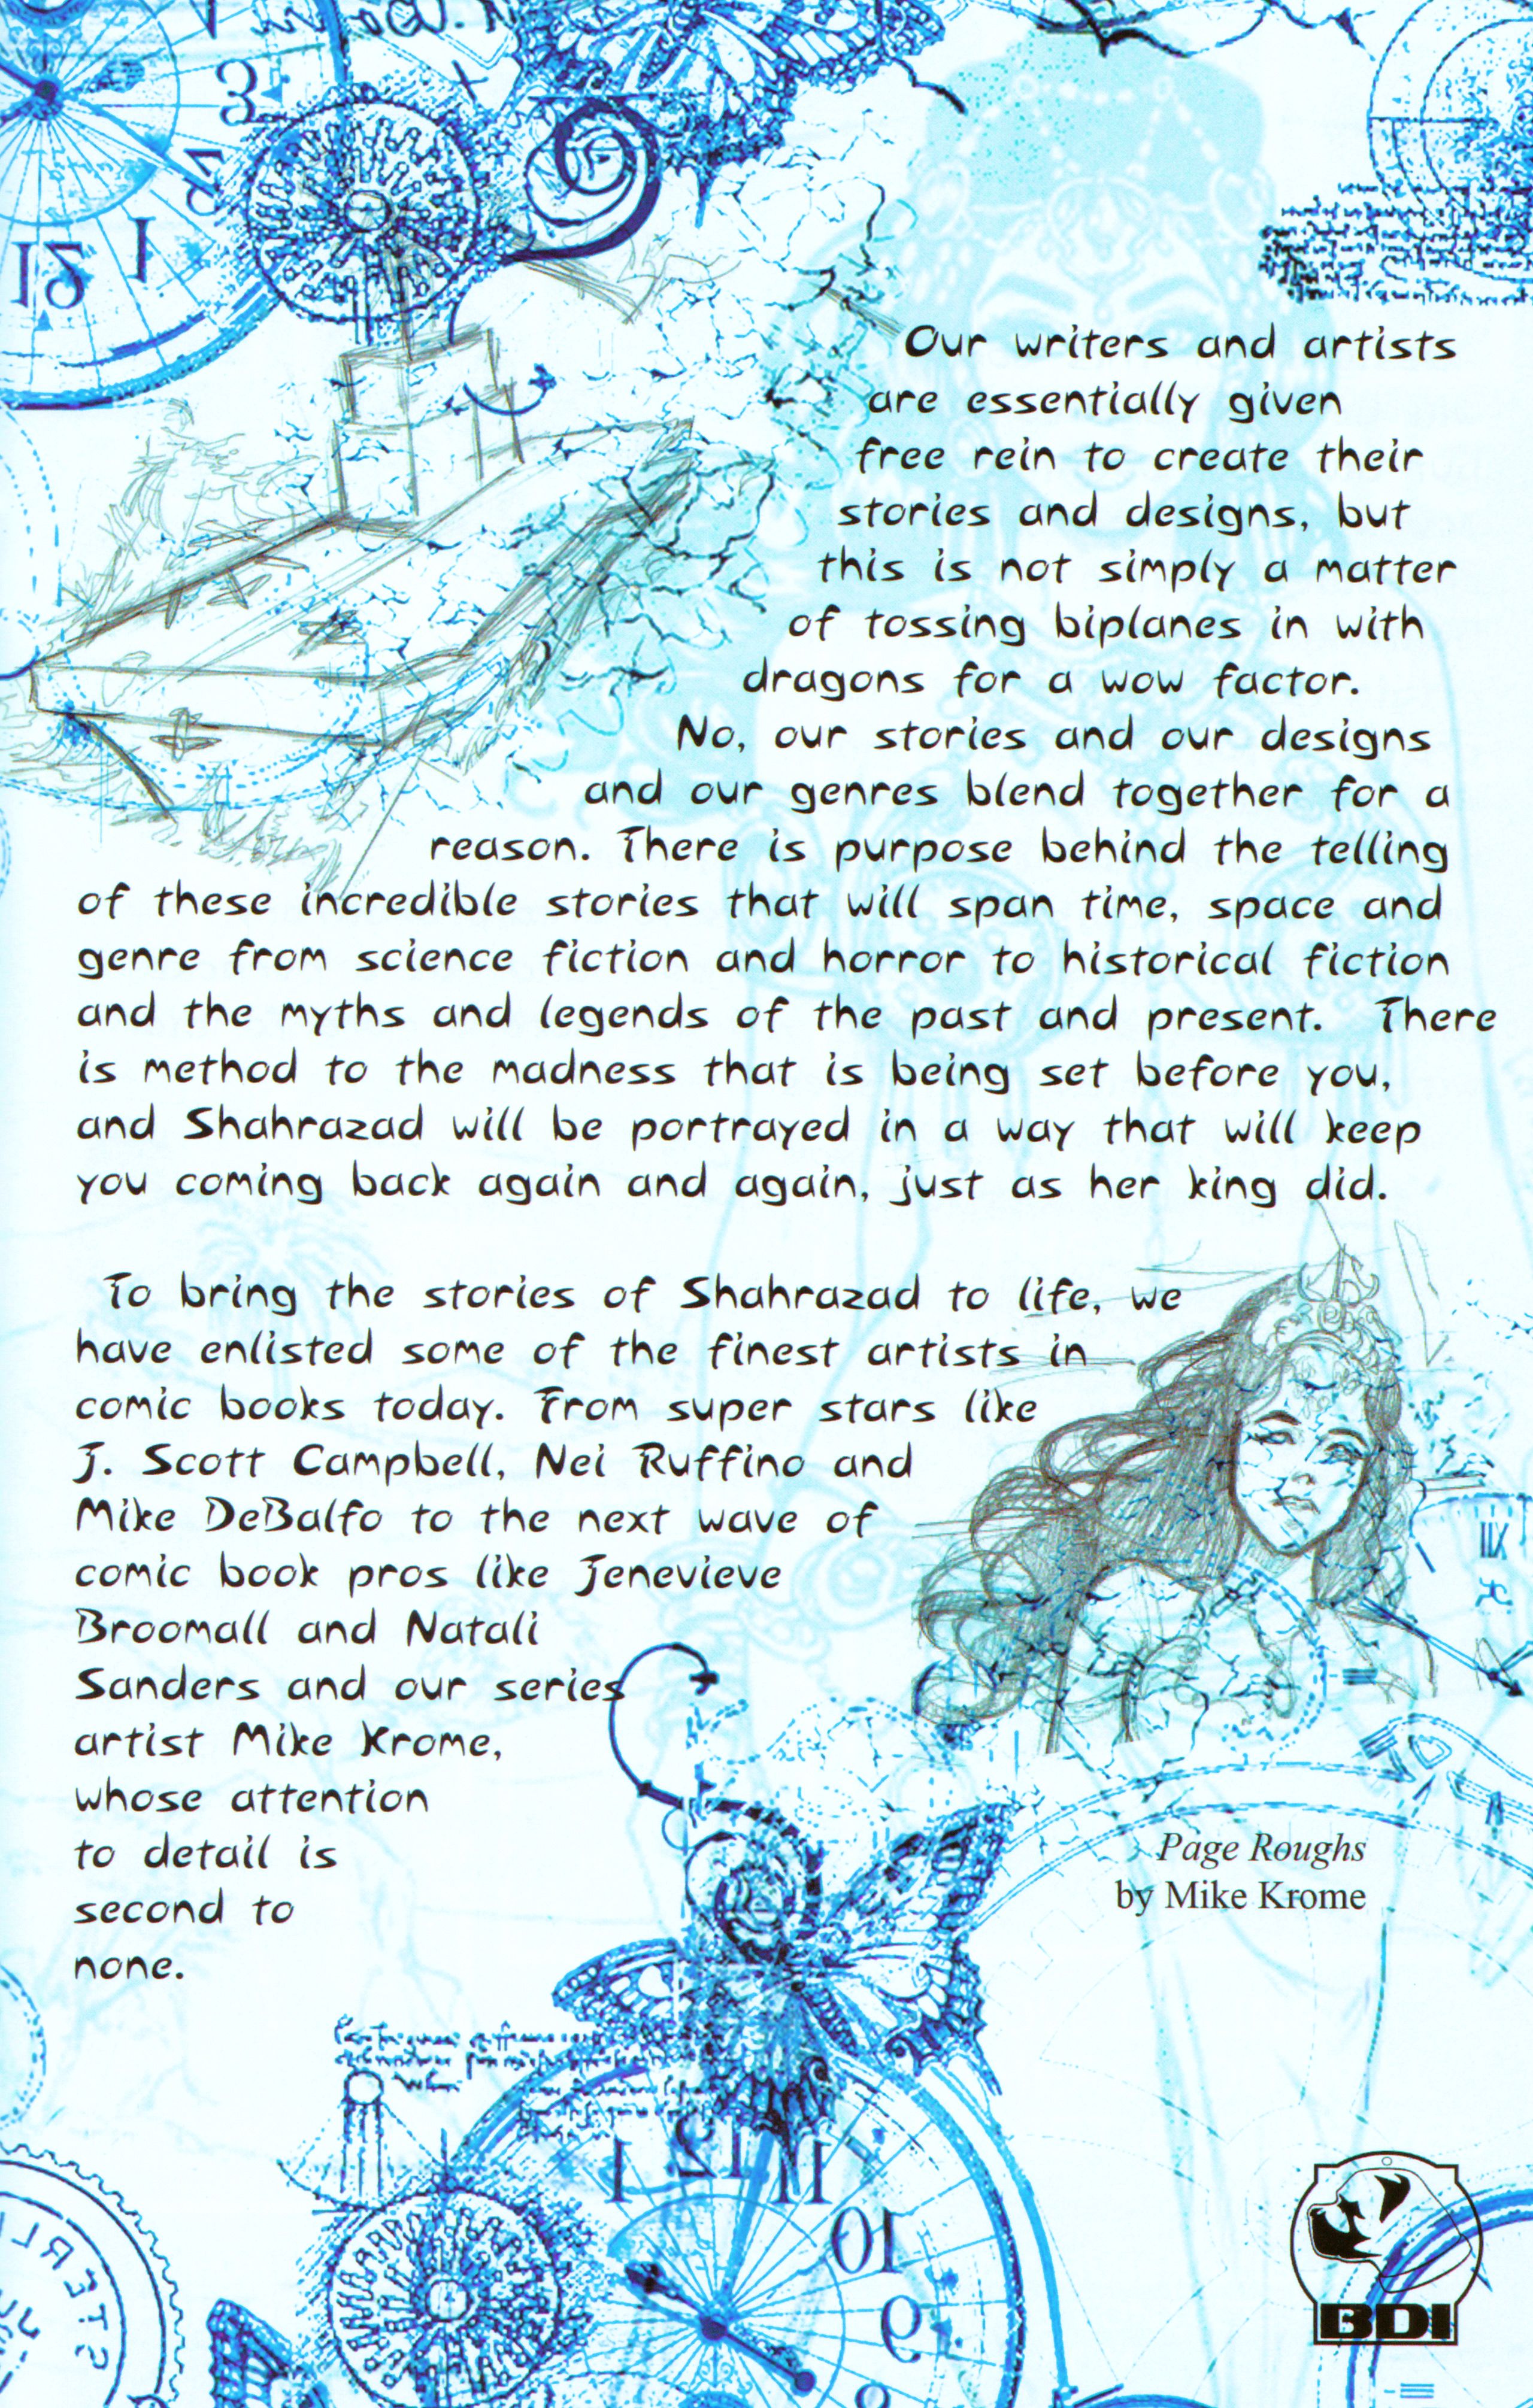 Our writers and artists
are essentially given
free rein to create their
stories and designs, but
this is not simply a matter
of tossing biplanes in with
dragons for a wow factor.
No, our stories and our designs
and our genres blend together for a
reason. There is purpose behind the telling
of these incredible stories that will span time, space and
genre from science fiction and horror to historical fiction
and the myths and legends of the past and present. There
is method to the madness that is being set before you,
and Shahrazad will be portrayed in a way that will keep
you coming back again and again, just as her king did.
To bring the stories of Shahrazad to life, we
have enlisted some of the finest artists in
comic books today. From super stars like
J. Scott Campbell, Nei Ruffino and
Mike DeBalfo to the next wave of
comic book pros like Jenevieve
Broomall and Natali
Sanders and our series
artist Mike Krome,
whose attention
to detail is
second to
none.
Page Roughs
by Mike Krome
1 12 11
10
9
BDI